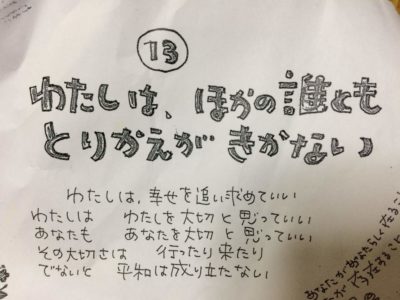 13
わたしは、ほかの誰とも
とりかえが きかない
わたしは,幸せを追い求めていい
わたしは わたしを大切と思っていい
あなたも あなたを大切と思っていい
その大切さは 行ったり来たり
でないと 平和は成り立たない